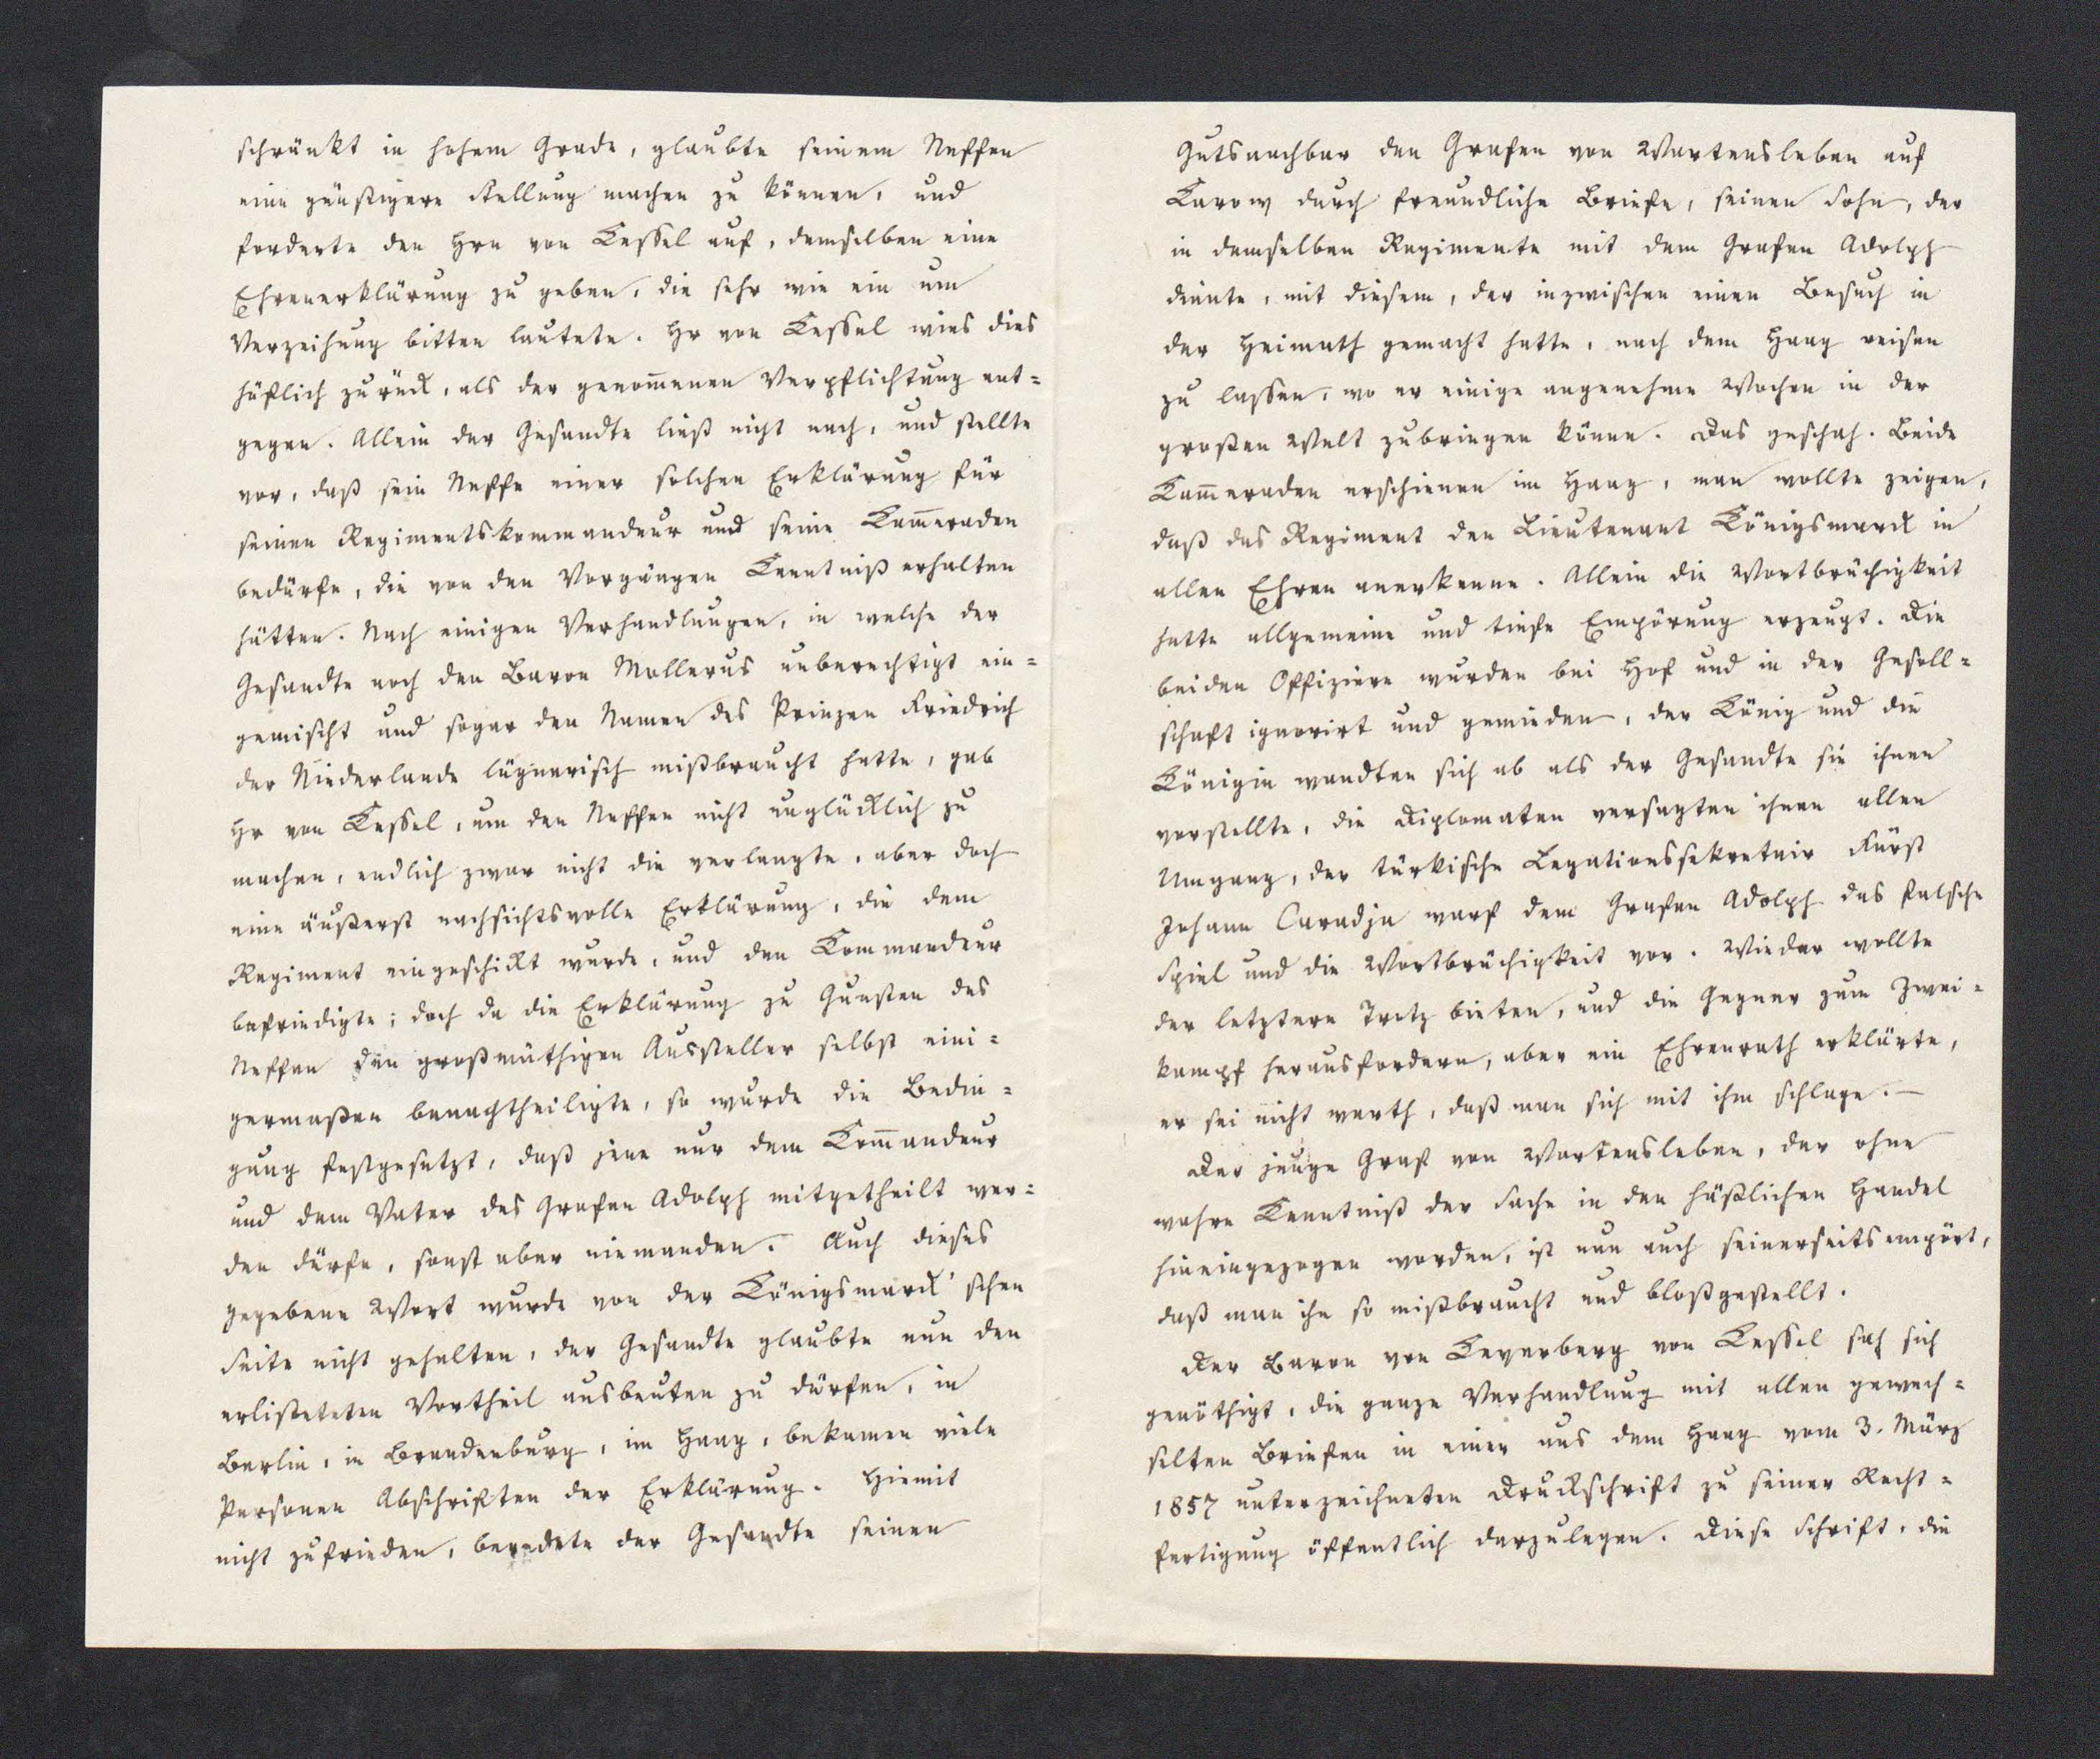 schränkt in hohem Grade, glaubte seinem Neffen
eine günstigere Stellung machen zu können, und
forderte den Hrn von Kessel auf, demselben eine
Ehrenerklärung zu geben, die sehr wie ein um
Verzeihung bitten lautete. Hr von Kessel wies dies
höflich zurück, als der genom̄enen Verpflichtung ent=
gegen. Allein der Gesandte ließ nicht nach, und stellte
vor, daß sein Neffe einer solchen Erklärung für
seinen Regimentskommandeur und seine Kam̄eraden
bedürfe, die von den Vorgängen Kenntniß erhalten
hätten. Nach einigen Verhandlungen, in welche der
Gesandte noch den Baron Mollerus unberechtigt ein=
gemischt und sogar den Namen des Prinzen Friedrich
der Niederlande lügnerisch mißbraucht hatte, gab
Hr von Kessel, um den Neffen nicht unglücklich zu
machen, endlich zwar nicht die verlangte, aber doch
eine äußerst nachsichtsvolle Erklärung, die dem
Regiment eingeschickt wurde, und den Kommandeur
befriedigte; doch da die Erklärung zu Gunsten des
Neffen den großmüthigen Aussteller selbst eini=
germaßen benachtheiligte, so wurde die Bedin=
gung festgesetzt, daß jene nur dem Kom̄andeur
und dem Vater des Grafen Adolph mitgetheilt wer=
den dürfe, sonst aber niemanden. Auch dieses
gegebene Wort wurde von der Königsmarck'schen
Seite nicht gehalten, der Gesandte glaubte nun den
erlisteteten Vortheil ausbeuten zu dürfen, in
Berlin, in Brandenburg, im Haag, bekamen viele
Personen Abschriften der Erklärung. Hiemit
nicht zufrieden, beredete der Gesandte seinen
Gutsnachbar den Grafen von Wartensleben auf
Karow durch freundliche Briefe, seinen Sohn, der
in demselben Regimente mit dem Grafen Adolph
diente, mit diesem, der inzwischen einen Besuch in
der Heimath gemacht hatte, nach dem Haag reisen
zu lassen, wo er einige angenehme Wochen in der
großen Welt zubringen könne. Das geschah. Beide
Kam̄eraden erschienen im Haag, man wollte zeigen,
daß das Regiment den Lieutenant Königsmarck in
allen Ehren anerkenne. Allein die Wortbrüchigkeit
hatte allgemeine und tiefe Empörung erzeugt. Die
beiden Offiziere wurden bei Hof und in der Gesell=
schaft ignorirt und gemieden, der König und die
Königin wandten sich ab als der Gesandte sie ihnen
vorstellte, die Diplomaten versagten ihnen allen
Umgang, der türkische Legationssekretair Fürst
Johann Caradja warf dem Grafen Adolph das falsche
Spiel und die Wortbrüchigkeit vor. Wieder wollte
der letztere Trotz bieten, und die Gegner zum Zwei=
kampf herausfordern, aber ein Ehrenrath erklärte,
er sei nicht werth, daß man sich mit ihm schlage.—
Der junge Graf von Wartensleben, der ohne
wahre Kenntniß der Sache in den häßlichen Handel
hineingezogen worden, ist nun auch seinerseits empört,
daß man ihn so mißbraucht und bloßgestellt.
Der Baron von Keverberg von Kessel sah sich
genöthigt, die ganze Verhandlung mit allen gewech=
selten Briefen in einer aus dem Haag vom 3. März
1857 unterzeichneten Druckschrift zu seiner Recht=
fertigung öffentlich darzulegen. Diese Schrift, die